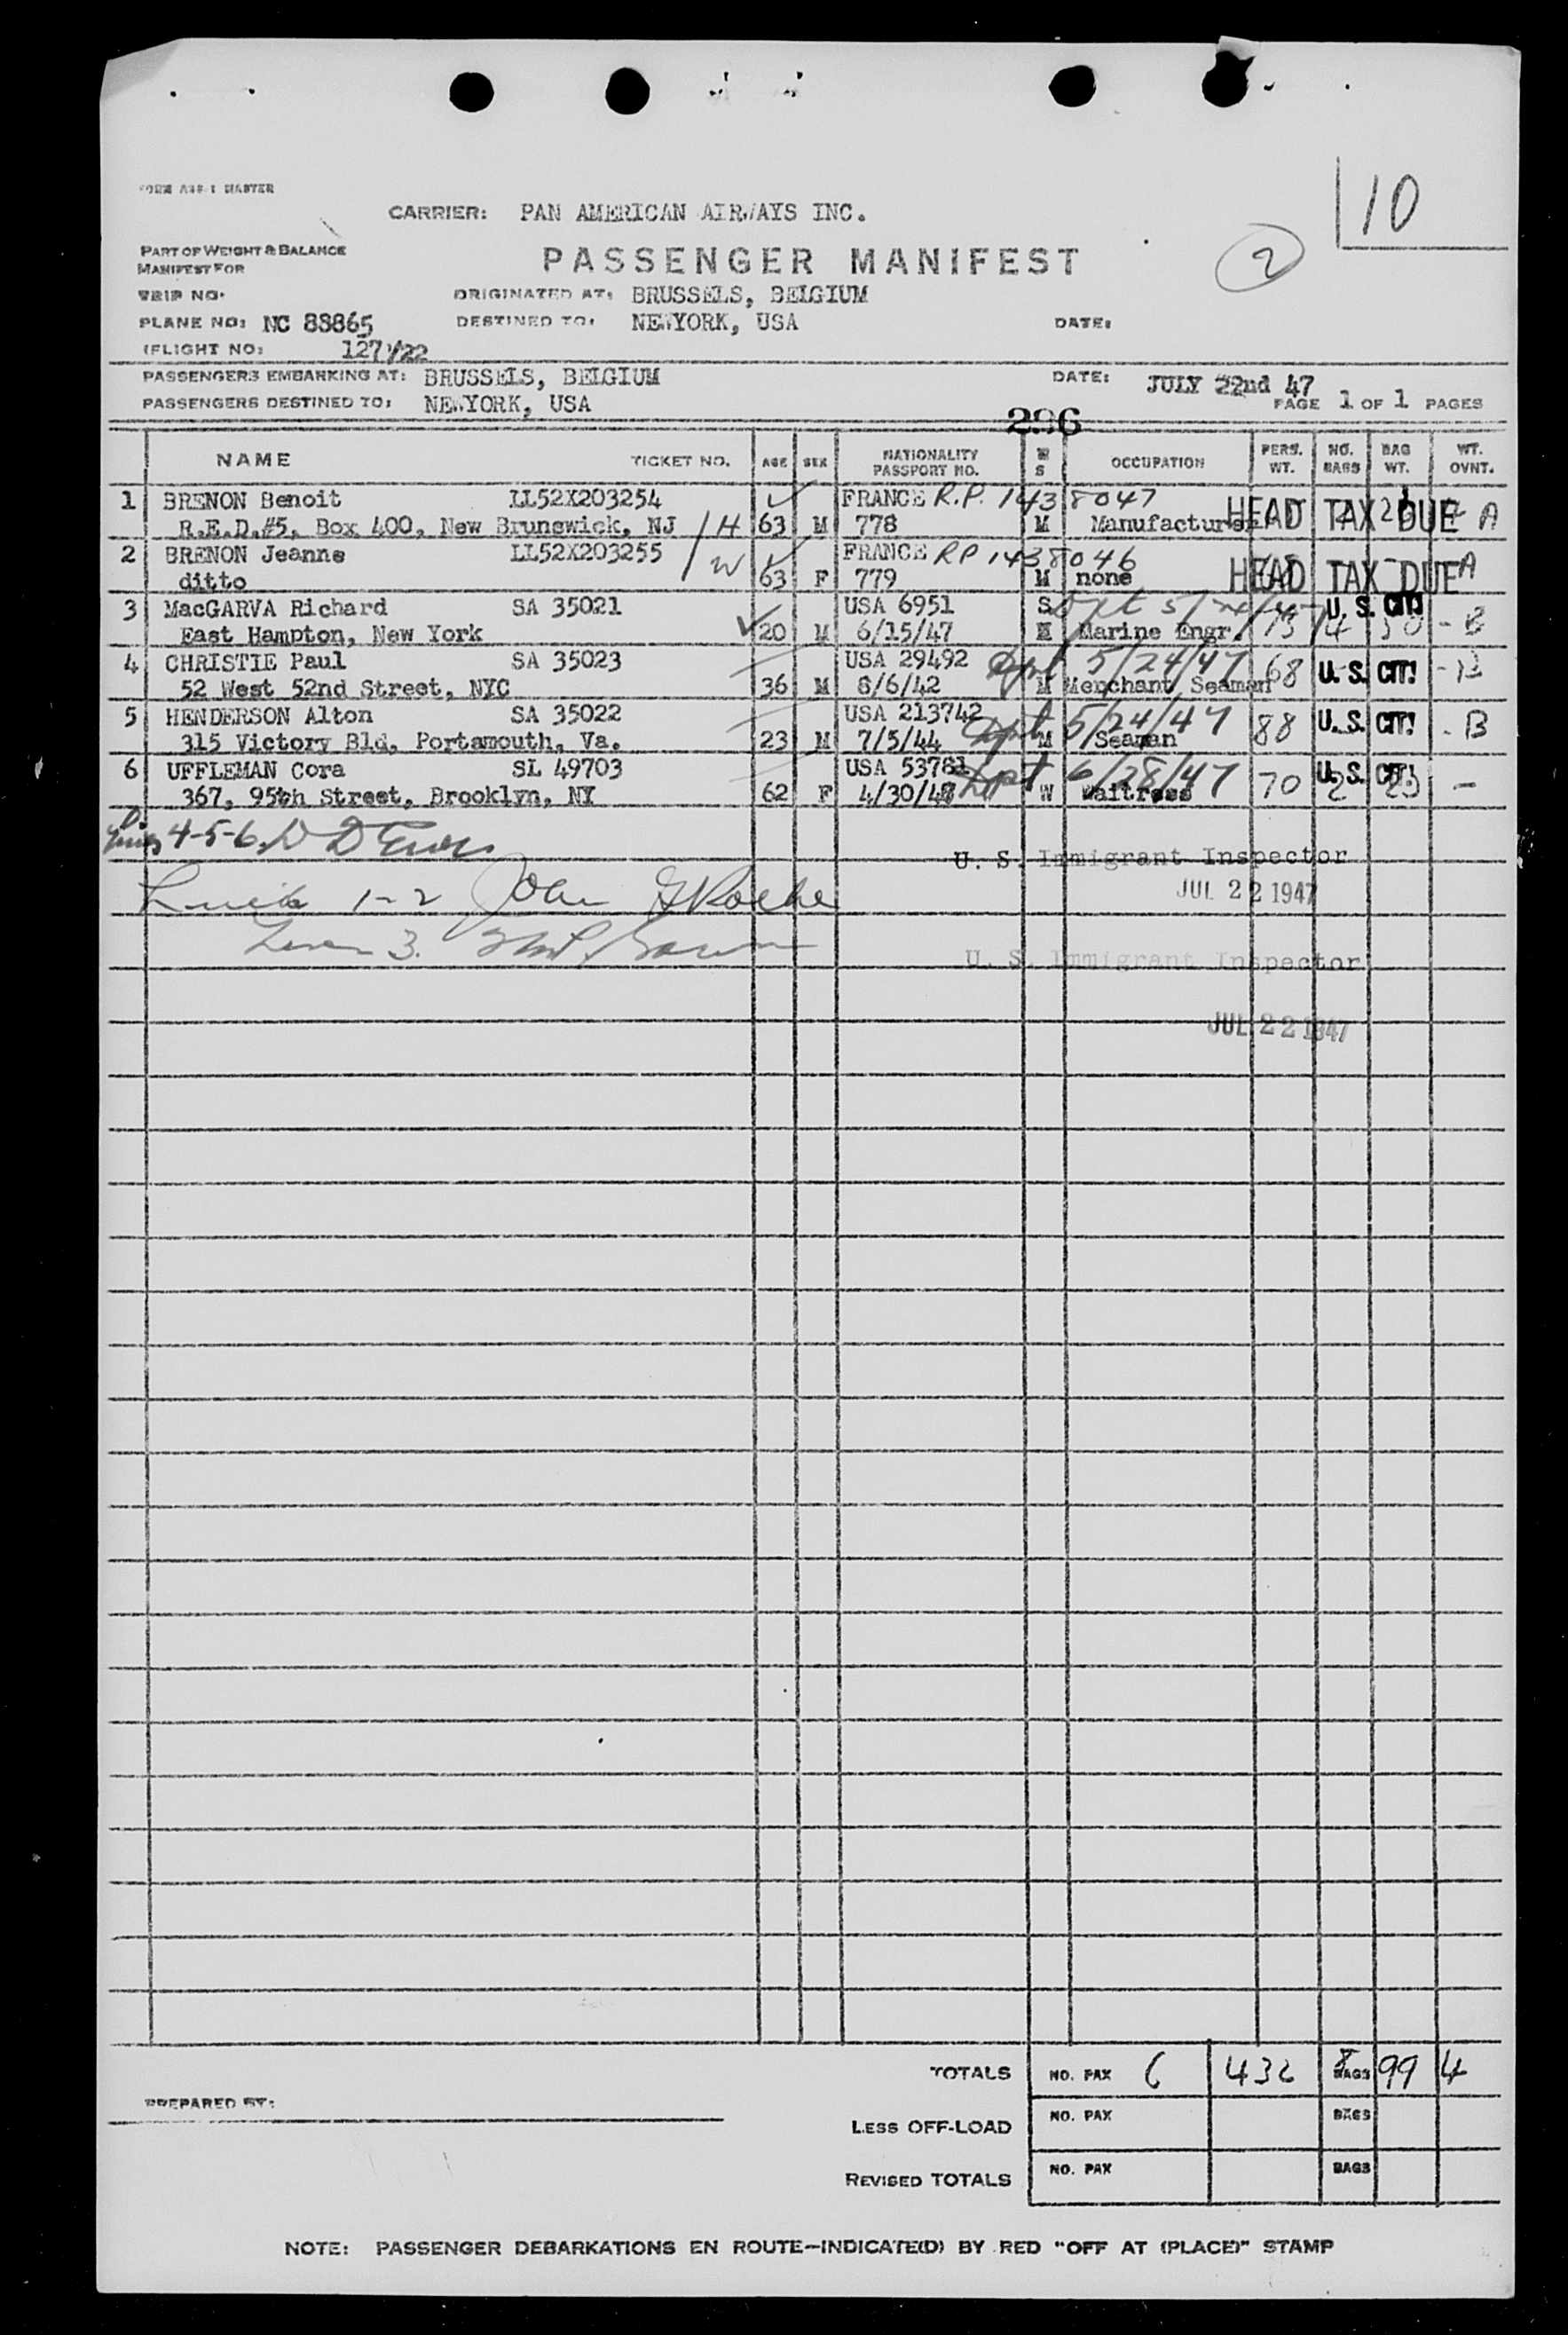 FORM ASB-1 MASTER
10
CARRIER: PAN AMERICAN AIRWAYS INC.
PART OF WEIGHT & BALANCE
MANIFEST FOR
PASSENGER MANIFEST
2
TRIP NO.
ORIGINATED AT: BRUSSELS, BELGIUM
PLANE NO: NC 88865
DESTINED TO: NEWYORK, USA
DATE:
(FLIGHT NO: 127/22
PASSENGERS EMBARKING AT: BRUSSELS, BELGIUM
DATE: JULY 22nd 47
PASSENGERS DESTINED TO: NEWYORK, USA
PAGE 1 OF 1 PAGES
296
NAME TICKET NO. AGE SEX NATIONALITY PASSPORT NO. M S OCCUPATION PERS. WT. NO. BAGS BAG WT. WT. OVNT.
1 BRENON Benoit LL52X203254 FRANCE R.P. 1438047
R.E.D.#5, Box 400, New Brunswick, NJ H 63 M 778 M Manufacturer HEAD TAX DUE A
2 BRENON Jeanne LL52X203255 FRANCE RP 1438046
ditto W 63 F 779 M none HEAD TAX DUE A
3 MacGARVA Richard SA 35021 USA 6951 S U.S. CIT!
East Hampton, New York 20 M 6/15/47 Marine Engr. 4 - B
4 CHRISTIE Paul SA 35023 USA 29492 Dpt 5/24/47
52 West 52nd Street, NYC 36 M 8/6/42 M Merchant Seaman 68 U.S. CIT! - B
5 HENDERSON Alton SA 35022 USA 213742 Dpt 5/24/47
315 Victory Bld, Portsmouth, Va. 23 M 7/5/44 M Seaman 88 U.S. CIT! - B
6 UFFLEMAN Cora SL 49703 USA 53781 Dpt 6/28/47 U.S. CIT!
367, 95th Street, Brooklyn, NY 62 F 4/30/47 W Waitress 70 2 23 -
4-5-6
U. S. Immigrant Inspector
1-2 John
JUL 22 1947
3.
U. S. Immigrant Inspector
JUL 22 1947
TOTALS NO. PAX 6 432 8 BAGS 99 4
PREPARED BY:
LESS OFF-LOAD NO. PAX BAGS
REVISED TOTALS NO. PAX BAGS
NOTE: PASSENGER DEBARKATIONS EN ROUTE—INDICATE(D) BY RED "OFF AT (PLACE)" STAMP